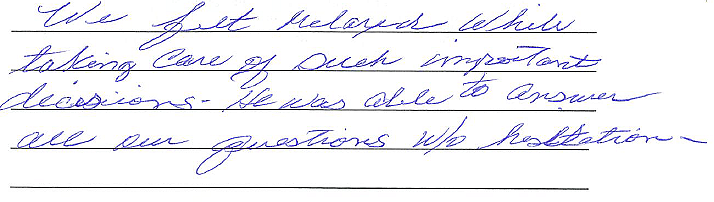 We felt relaxed while
taking care of such important
decisions - He was able to answer
all our questions w/o hesitation -